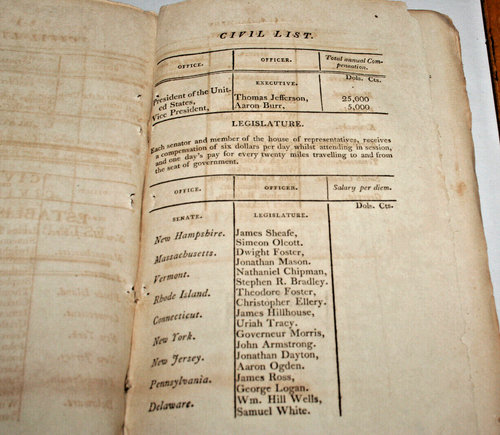 CIVIL LIST.
OFFICE. OFFICER. Total annual Compensation.
EXECUTIVE. Dols. Cts.
President of the United States, Thomas Jefferson, 25,000
Vice President, Aaron Burr. 5,000
LEGISLATURE.
Each senator and member of the house of representatives, receives
a compensation of six dollars per day whilst attending in session,
and one day's pay for every twenty miles travelling to and from
the seat of government.
OFFICE. OFFICER. Salary per diem.
Dols. Cts.
SENATE. LEGISLATURE.
New Hampshire. James Sheafe,
Simeon Olcott.
Massachusetts. Dwight Foster,
Jonathan Mason.
Vermont. Nathaniel Chipman,
Stephen R. Bradley.
Rhode Island. Theodore Foster,
Christopher Ellery.
Connecticut. James Hillhouse,
Uriah Tracy.
New York. Governeur Morris,
John Armstrong.
New Jersey. Jonathan Dayton,
Aaron Ogden.
Pennsylvania. James Ross,
George Logan.
Delaware. Wm. Hill Wells,
Samuel White.